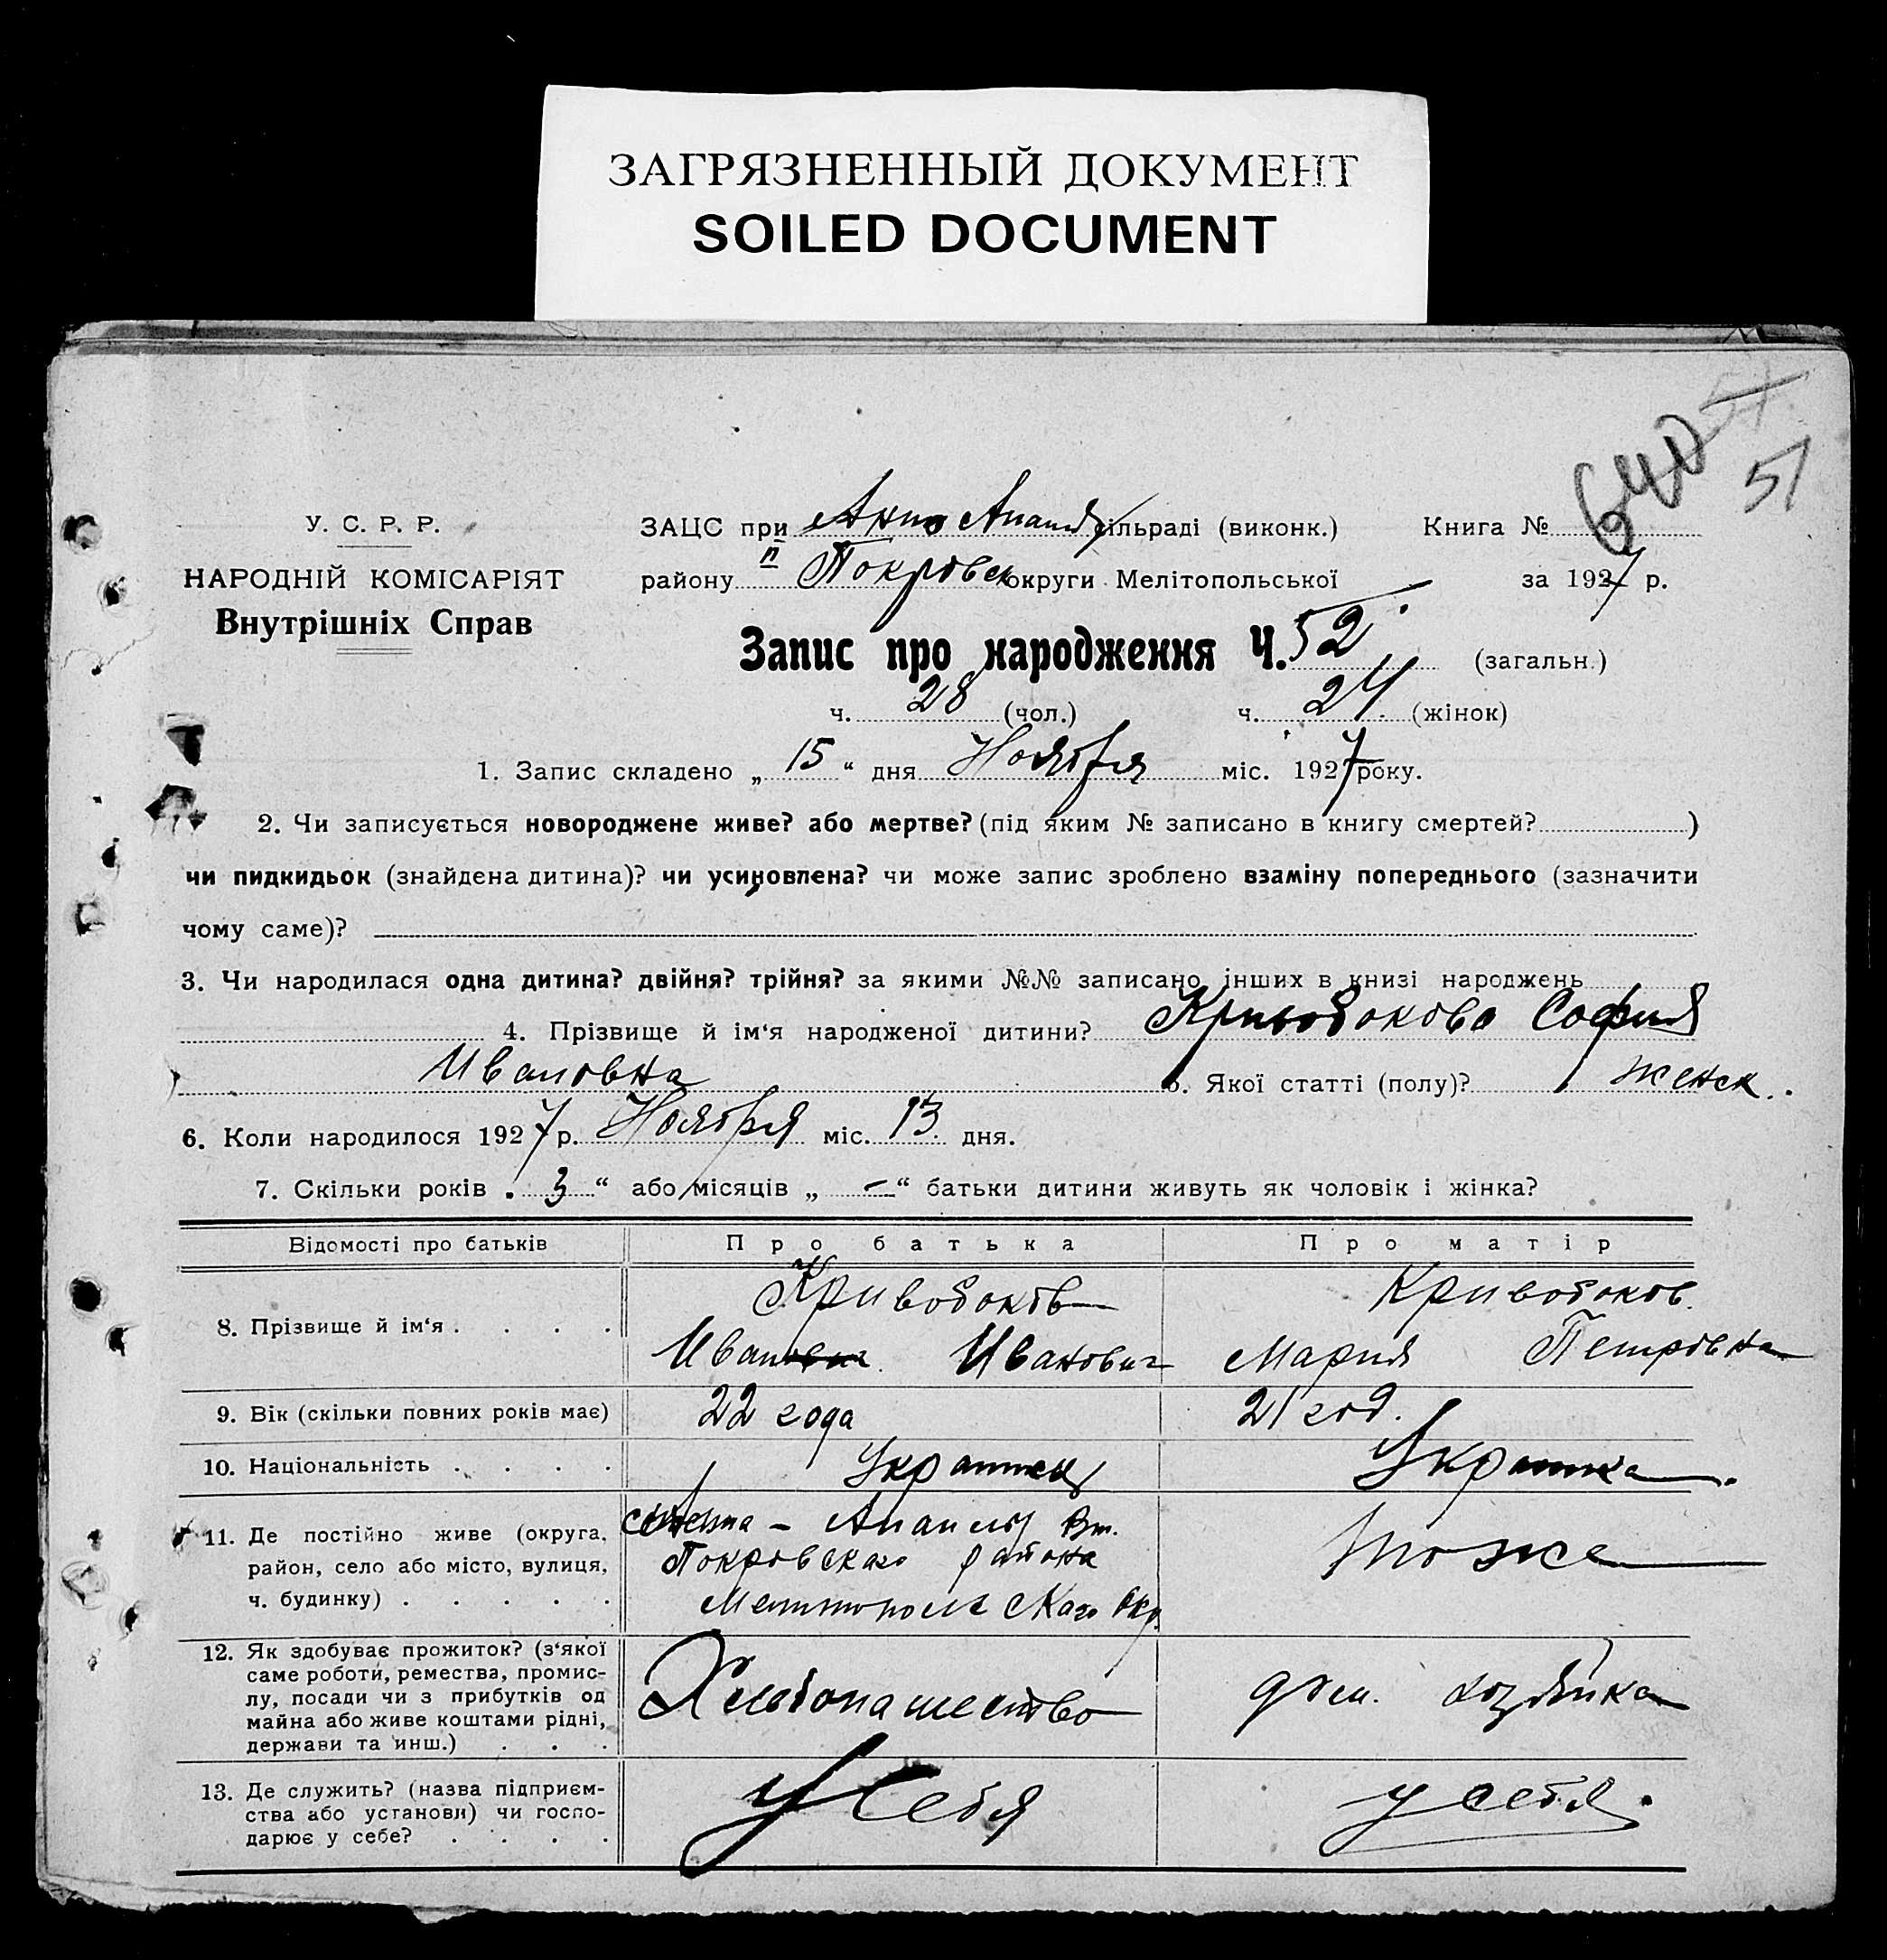 ЗАГРЯЗНЕННЫЙ ДОКУМЕНТ
SOILED DOCUMENT
57
640
51
У. С. Р. Р.
НАРОДНІЙ КОМІСАРІЯТ
Внутрішніх Справ
ЗАЦС при сільраді (виконк.) Книга №
району II Покровск округи Мелітопольської за 1927 р.
Запис про народження Ч. 52 (загальн.)
ч. 28 (чол.) ч. 24 (жінок)
1. Запис складено „ 15 “ дня Ноября міс. 1927 року.
2. Чи записується новороджене живе? або мертве? (під яким № записано в книгу смертей? )
чи пидкидьок (знайдена дитина)? чи усиновлена? чи може запис зроблено взаміну попереднього (зазначити
чому саме)?
3. Чи народилася одна дитина? двійня? трійня? за якими №№ записано інших в книзі народжень
4. Прізвище й ім‘я народженої дитини? Кривобокова София
Ивановна 5. Якої статті (полу)? женск.
6. Коли народилося 1927 р. Ноября міс. 13 дня.
7. Скільки років „ 3 “ або місяців „ — “ батьки дитини живуть як чоловік і жінка?
Відомості про батьків Про батька Про матір
8. Прізвище й ім‘я . . . . Кривобоков Иван Иванович Кривобоков. Мария Петровна
9. Вік (скільки повних років має) 22 года 21 год.
10. Національність . . . . Украинец Украинка
11. Де постійно живе (округа,
район, село або місто, вулиця,
ч. будинку) . . . . .
Покровскаго района
Мелитопольскаго Окр.
тоже
12. Як здобуває прожиток? (з‘якої
саме роботи, ремества, промис-
лу, посади чи з прибутків од
майна або живе коштами рідні,
держави та инш.) . . .
Хлебопашество
дом. хозяйка
13. Де служить? (назва підприєм-
ства або установи) чи госпо-
дарює у себе? . . . .
У себя
у себя.